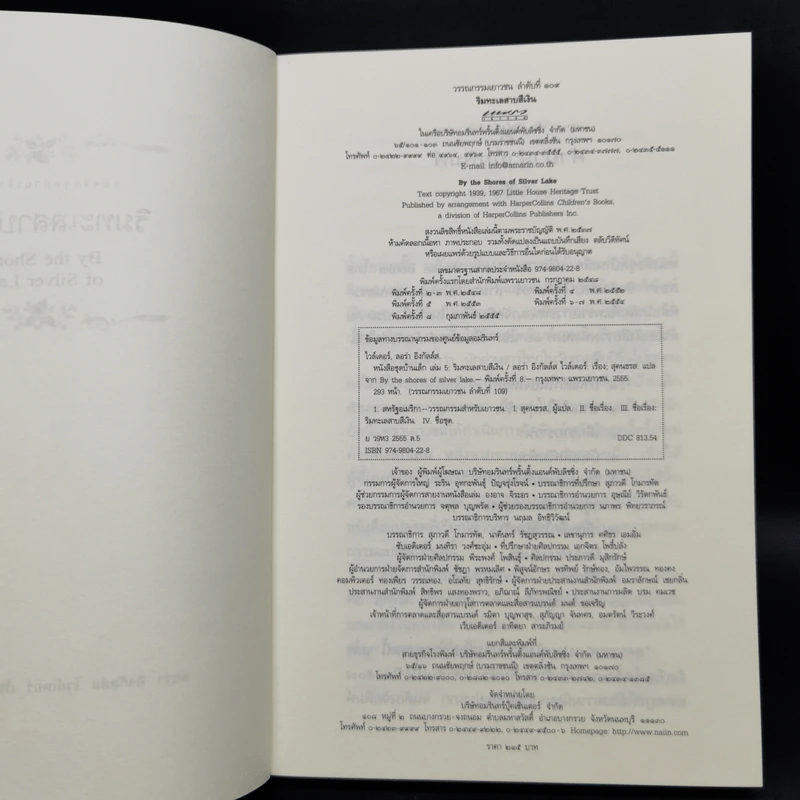 วรรณกรรมเยาวชน ลำดับที่ ๑๐๙
ริมทะเลสาบสีเงิน
แพรว
ในเครือบริษัทอมรินทร์พริ้นติ้งแอนด์พับลิชชิ่ง จำกัด (มหาชน)
๖๕/๑๐๑-๑๐๓ ถนนชัยพฤกษ์ (บรมราชชนนี) เขตตลิ่งชัน กรุงเทพฯ ๑๐๑๗๐
โทรศัพท์ ๐-๒๔๒๒-๙๙๙๙ ต่อ ๔๙๖๔, ๔๙๖๙ โทรสาร ๐-๒๔๓๔-๓๕๕๕, ๐-๒๔๓๔-๓๗๗๗, ๐-๒๔๓๕-๕๑๑๑
E-mail: info@amarin.co.th
By the Shores of Silver Lake
Text copyright 1939, 1967 Little House Heritage Trust
Published by arrangement with HarperCollins Children's Books,
a division of HarperCollins Publishers Inc.
สงวนลิขสิทธิ์หนังสือเล่มนี้ตามพระราชบัญญัติ พ.ศ. ๒๕๓๗
ห้ามคัดลอกเนื้อหา ภาพประกอบ รวมทั้งดัดแปลงเป็นแถบบันทึกเสียง ตลับวีดิทัศน์
หรือเผยแพร่ด้วยรูปแบบและวิธีการอื่นใดก่อนได้รับอนุญาต
เลขมาตรฐานสากลประจำหนังสือ 974-9804-22-8
พิมพ์ครั้งแรกโดยสำนักพิมพ์แพรวเยาวชน กรกฎาคม ๒๕๔๘
พิมพ์ครั้งที่ ๒-๓ พ.ศ. ๒๕๔๘ พิมพ์ครั้งที่ ๔ พ.ศ. ๒๕๕๒
พิมพ์ครั้งที่ ๕ พ.ศ. ๒๕๕๓ พิมพ์ครั้งที่ ๖-๗ พ.ศ. ๒๕๕๔
พิมพ์ครั้งที่ ๘ กุมภาพันธ์ ๒๕๕๕
ข้อมูลทางบรรณานุกรมของศูนย์ข้อมูลอมรินทร์
ไวล์เดอร์, ลอร่า อิงกัลล์ส.
หนังสือชุดบ้านเล็ก เล่ม 5: ริมทะเลสาบสีเงิน / ลอร่า อิงกัลล์ส ไวล์เดอร์: เรื่อง; สุคนธรส: แปล
จาก By the shores of silver lake.-- พิมพ์ครั้งที่ 8.-- กรุงเทพฯ: แพรวเยาวชน, 2555.
293 หน้า. (วรรณกรรมเยาวชน ลำดับที่ 109)
1. สหรัฐอเมริกา--วรรณกรรมสำหรับเยาวชน. I. สุคนธรส, ผู้แปล. II. ชื่อเรื่อง. III. ชื่อเรื่อง:
ริมทะเลสาบสีเงิน. IV. ชื่อชุด.
ย ว9ท3 2555 ล.5 DDC 813.54
ISBN 974-9804-22-8
เจ้าของ ผู้พิมพ์ผู้โฆษณา บริษัทอมรินทร์พริ้นติ้งแอนด์พับลิชชิ่ง จำกัด (มหาชน)
กรรมการผู้จัดการใหญ่ ระริน อุทกะพันธุ์ ปัญจรุ่งโรจน์ • บรรณาธิการที่ปรึกษา สุภาวดี โกมารทัต
ผู้ช่วยกรรมการผู้จัดการสายงานหนังสือเล่ม องอาจ จิระอร • บรรณาธิการอำนวยการ อุษณีย์ วิรัตกพันธ์
รองบรรณาธิการอำนวยการ จตุพล บุญพรัด • ผู้ช่วยรองบรรณาธิการอำนวยการ นภาพร พิทยวราภรณ์
บรรณาธิการบริหาร นฤมล อิทธิวิวัฒน์
บรรณาธิการ สุภาวดี โกมารทัต, นาตินทร์ รัชฎสุวรรณ • เลขานุการ คศิธร เอมอิ่ม
ซับเอดิเตอร์ มนทิรา วงศ์ชะอุ่ม • ที่ปรึกษาฝ่ายศิลปกรรม เอกจิตร โพธิ์ปลั่ง
ผู้จัดการฝ่ายศิลปกรรม พีระพงศ์ โพสินธุ์ • ศิลปกรรม ประภาวดี มุสิกรักษ์
ผู้อำนวยการฝ่ายจัดการสำนักพิมพ์ ชัชฎา พรหมเลิศ • พิสูจน์อักษร พรทิพย์ รักษ์ทอง, อัมไพวรรณ ทองคง
คอมพิวเตอร์ ทองเพียร วรรณทอง, อโณทัย สุทธิรักษ์ • ผู้จัดการฝ่ายประสานงานสำนักพิมพ์ อมราลักษณ์ เชยกลิ่น
ประสานงานสำนักพิมพ์ สิทธิพร แสงทองพราว, อภิญาณ์ ลีภัทรพณิชย์ • ประสานงานการผลิต บรม คมเวช
ผู้จัดการฝ่ายอาวุโสการตลาดและสื่อสารแบรนด์ มนต์ ขอเจริญ
เจ้าหน้าที่การตลาดและสื่อสารแบรนด์ รมิดา บุญพาสุข, สุภัญญา จันทศร, อมตรัตน์ วีระวงศ์
เว็บเอดิเตอร์ อาทิตยา สาระภิรมย์
แยกสีและพิมพ์ที่
สายธุรกิจโรงพิมพ์ บริษัทอมรินทร์พริ้นติ้งแอนด์พับลิชชิ่ง จำกัด (มหาชน)
๖๕/๑๖ ถนนชัยพฤกษ์ (บรมราชชนนี) เขตตลิ่งชัน กรุงเทพฯ ๑๐๑๗๐
โทรศัพท์ ๐-๒๔๒๒-๙๐๐๐, ๐-๒๘๘๒-๑๐๑๐ โทรสาร ๐-๒๔๓๓-๒๗๔๒, ๐-๒๔๓๔-๑๓๘๕
จัดจำหน่ายโดย
บริษัทอมรินทร์บุ๊คเซ็นเตอร์ จำกัด
๑๐๘ หมู่ที่ ๒ ถนนบางกรวย-จงถนอม ตำบลมหาสวัสดิ์ อำเภอบางกรวย จังหวัดนนทบุรี ๑๑๑๓๐
โทรศัพท์ ๐-๒๔๒๓-๙๙๙๙ โทรสาร ๐-๒๔๔๙-๙๒๒๒, ๐-๒๔๔๙-๙๕๐๐-๖ Homepage: http://www.naiin.com
ราคา ๒๑๕ บาท